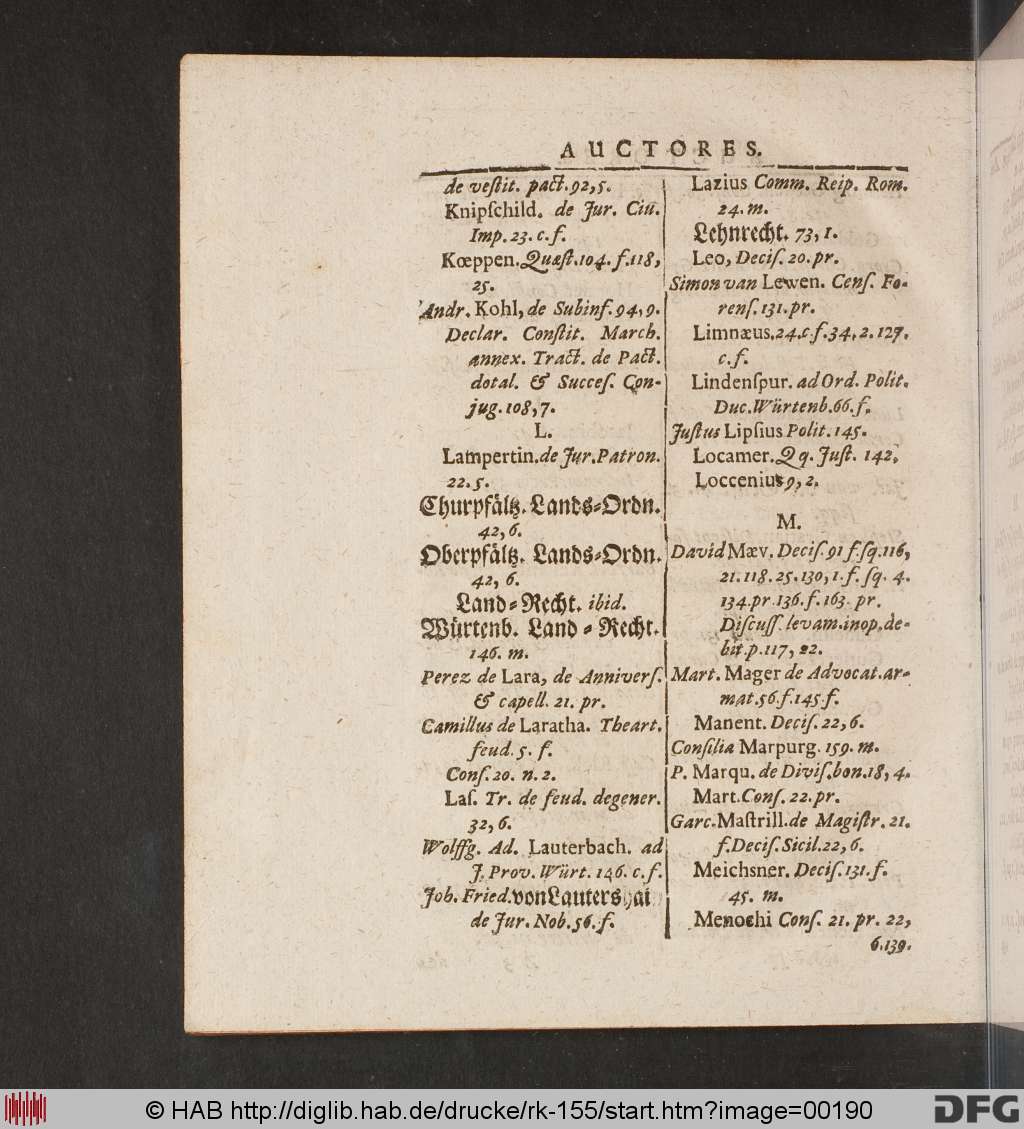 AUCTORES.
de veſtit. pact. 92, 5.
Knipſchild. de Jur. Ciu.
Imp. 23. c. f.
Kœppen. Quæſt. 104. f. 118,
25.
Andr. Kohl, de Subinf. 94, 9.
Declar. Conſtit. March.
annex. Tract. de Pact.
dotal. & Succeſ. Con-
jug. 108, 7.
L.
Lampertin. de Jur. Patron.
22. 5.
Churpfältz. Lands-Ordn.
42, 6.
Oberpfältz. Lands-Ordn.
42, 6.
Land-Recht. ibid.
Würtenb. Land-Recht.
146. m.
Perez de Lara, de Anniverſ.
& capell. 21. pr.
Camillus de Laratha. Theart.
feud. 5. f.
Conſ. 20. n. 2.
Laſ. Tr. de feud. degener.
32, 6.
Wolffg. Ad. Lauterbach. ad
J. Prov. Würt. 146. c. f.
Joh. Fried. von Lautershai
de Jur. Nob. 56. f.
Lazius Comm. Reip. Rom.
24. m.
Lehnrecht. 73, 1.
Leo, Deciſ. 20. pr.
Simon van Lewen. Cenſ. Fo-
renſ. 131. pr.
Limnæus. 24. c. f. 34, 2. 127.
c. f.
Lindenſpur. ad Ord. Polit.
Duc. Würtenb. 66. f.
Juſtus Lipſius Polit. 145.
Locamer. Qq. Juſt. 142.
Loccenius 9, 2.
M.
David Mæv. Deciſ. 91 f. ſq. 116,
21. 118. 25. 130, 1. f. ſq. 4.
134. pr. 136. f. 163. pr.
Diſcuſſ. levam. inop. de-
bit. p. 117, 22.
Mart. Mager de Advocat. ar-
mat. 56. f. 145. f.
Manent. Deciſ. 22, 6.
Conſilia Marpurg. 159. m.
P. Marqu. de Diviſ. bon. 18, 4.
Mart. Conſ. 22. pr.
Garc. Maſtrill. de Magiſtr. 21.
f. Deciſ. Sicil. 22, 6.
Meichsner. Deciſ. 131. f.
45. m.
Menochi Conſ. 21. pr. 22,
6. 139.
© HAB http://diglib.hab.de/drucke/rk-155/start.htm?image=00190
DFG